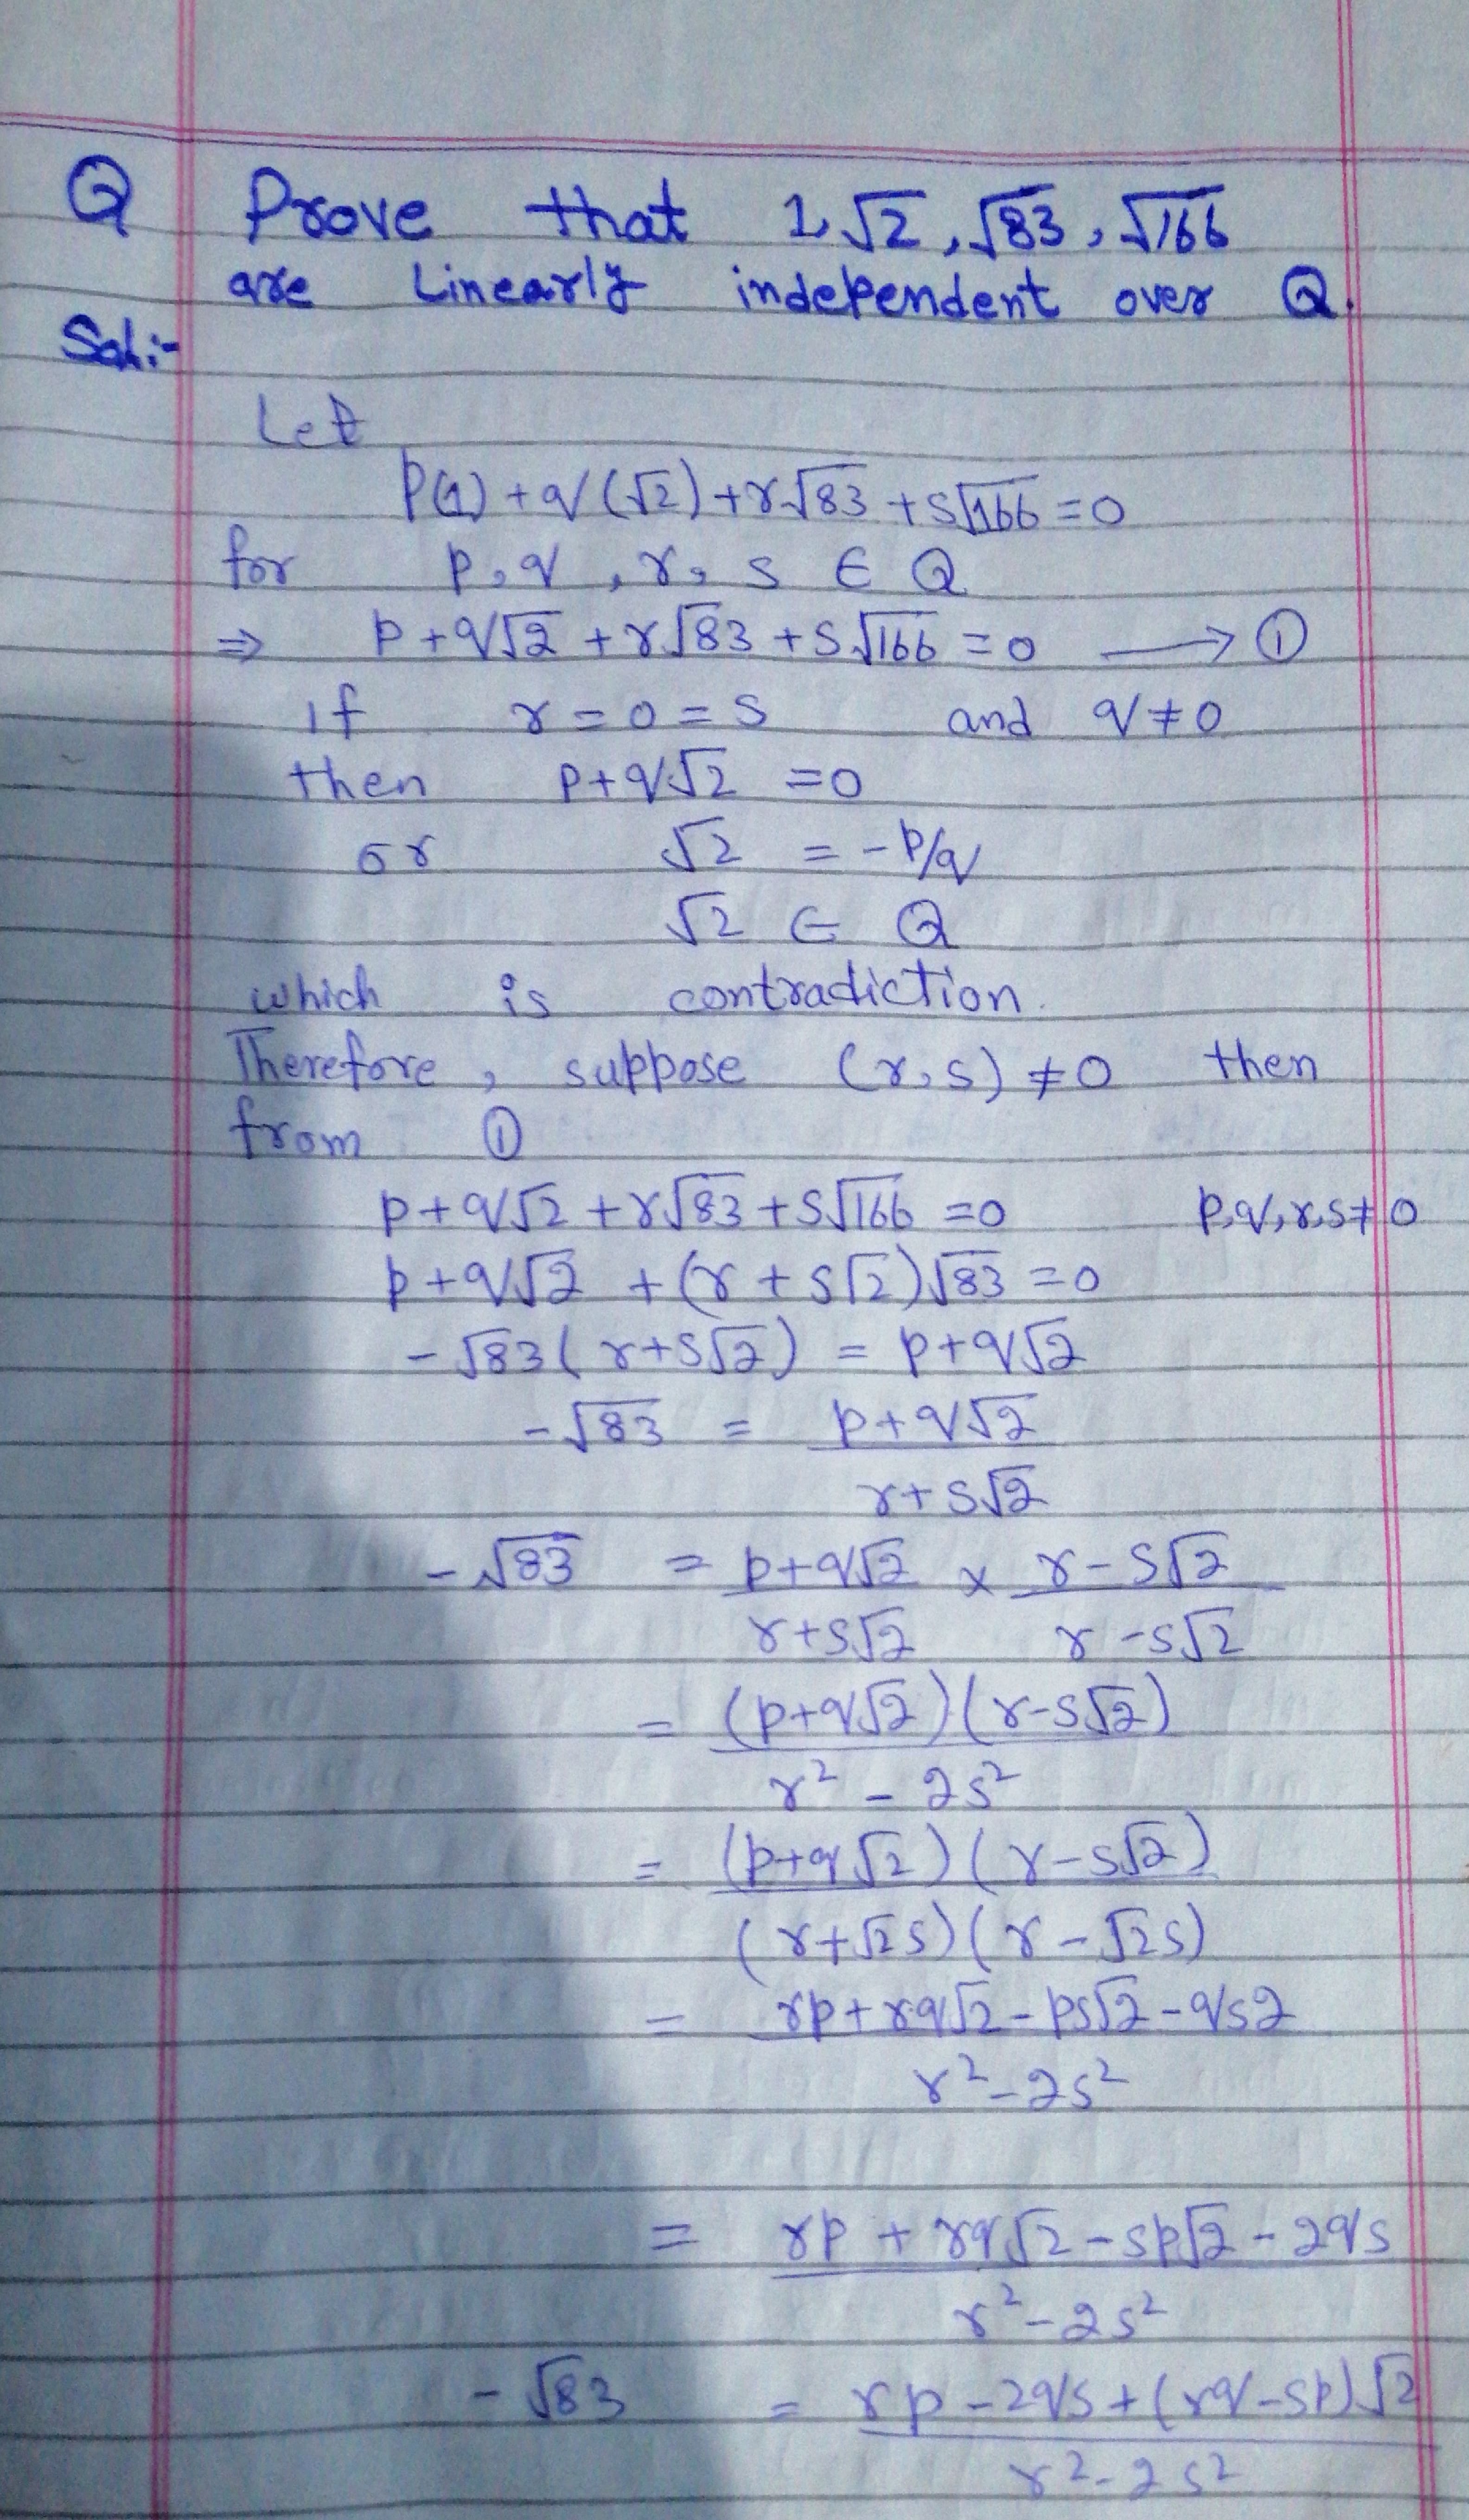 Q Prove that 1, √2, √83, √166
are Linearly independent over Q.
Sol:-
Let
P(1) + q(√2) + r√83 + s√166 = 0
for p, q, r, s ∈ Q
⇒ p + q√2 + r√83 + s√166 = 0 ⟶ ①
if r = 0 = s and q ≠ 0
then p + q√2 = 0
or √2 = -p/q
√2 ∈ Q
which is contradiction.
Therefore, suppose (r, s) ≠ 0 then
from ①
p + q√2 + r√83 + s√166 = 0 p, q, r, s ≠ 0
p + q√2 + (r + s√2)√83 = 0
-√83(r + s√2) = p + q√2
-√83 = p + q√2
r + s√2
-√83 = p + q√2 × r - s√2
r + s√2 r - s√2
= (p + q√2)(r - s√2)
r² - 2s²
= (p + q√2)(r - s√2)
(r + √2s)(r - √2s)
= rp + rq√2 - ps√2 - qs2
r² - 2s²
= rp + rq√2 - sp√2 - 2qs
r² - 2s²
-√83 = rp - 2qs + (rq - sp)√2
r² - 2s²